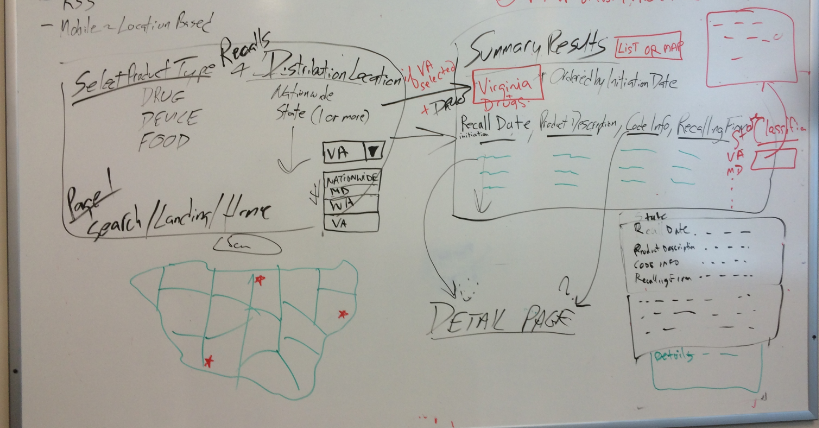 - RSS
- Mobile - Location Based
Recalls
Select Product Type + Distribution Location
DRUG
DEVICE
FOOD
Nationwide
State (1 or more)
VA
NATIONWIDE
MD
WA
VA
Page 1
Search/Landing/Home
if VA
selected
+ Drug
Summary Results
LIST OR MAP
Virginia
Drugs
Ordered by Initiation Date
Recall Date, Product Description, Code Info, Recalling Firm
initiation
State
VA
MD
DETAIL PAGE
?
State
Date
Product Description
CODE INFO
Recalling Firm
Details